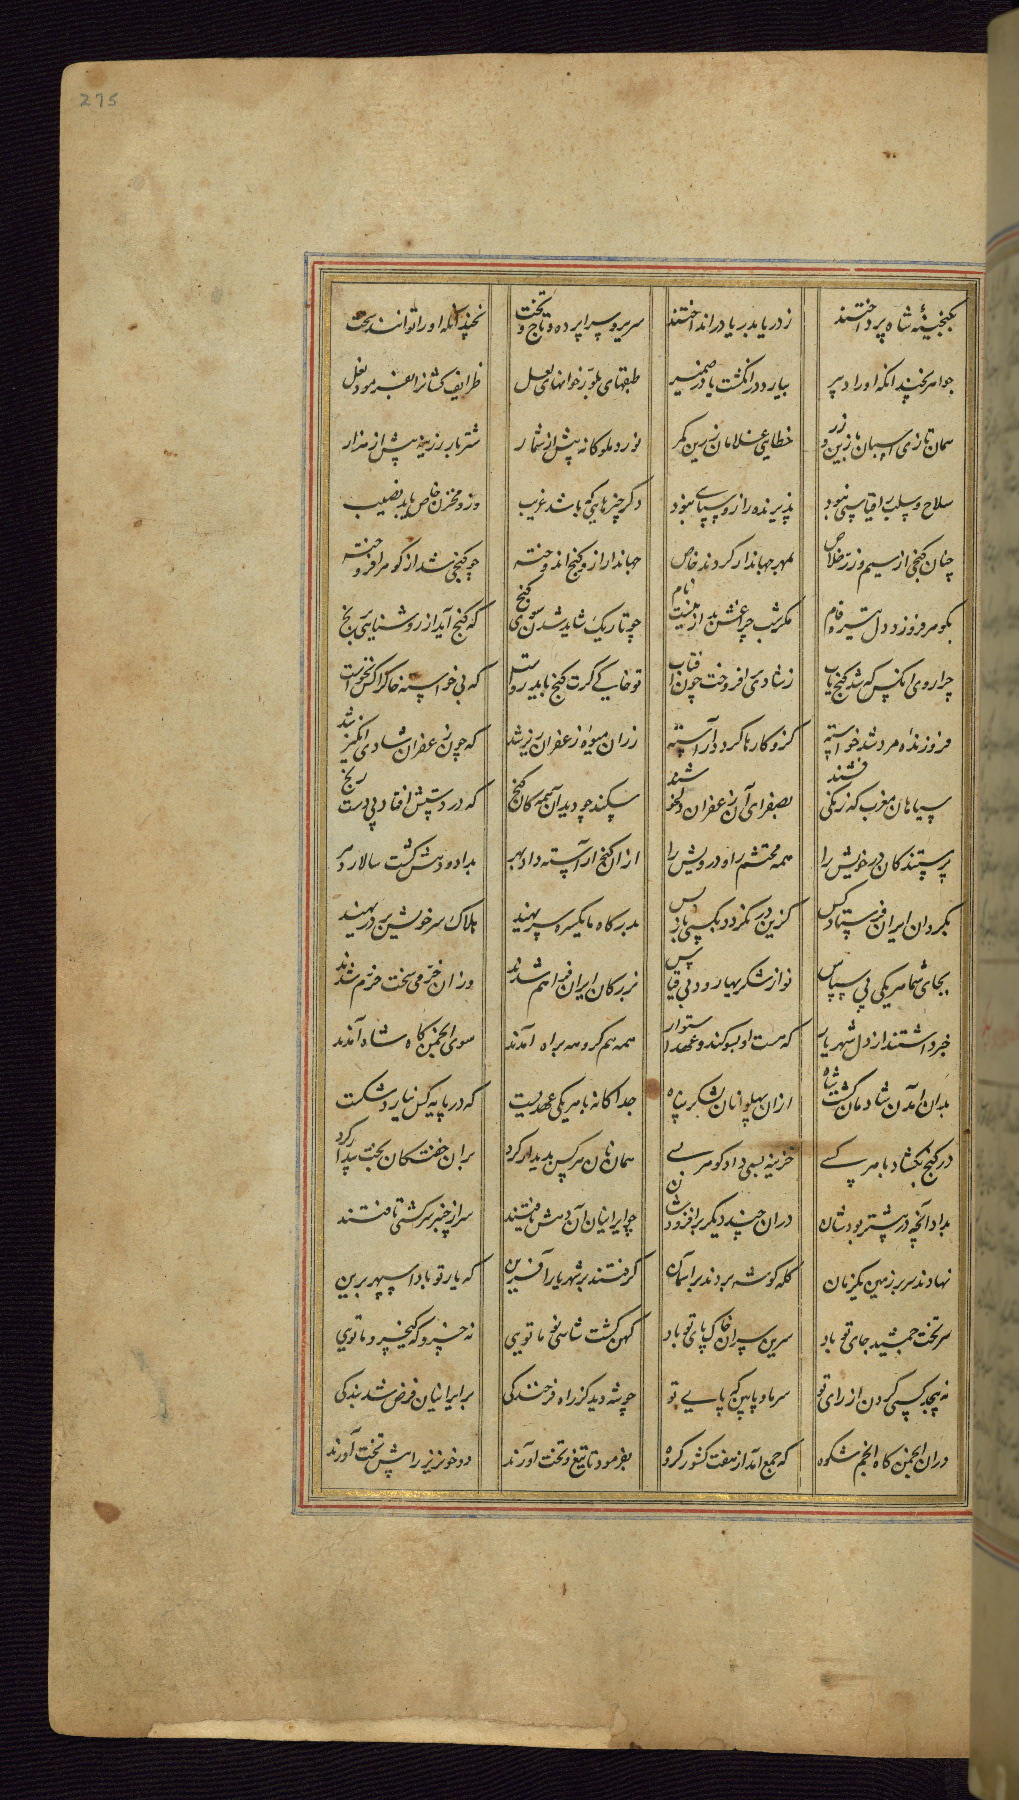 275
بگنجینهٔ شاه پرداختند زدریا بدریا در انداختند سریر و سراپرده و تاج و تخت نچندانکه اورا توانند سخت
جواهر نچندانکه اورا دبیر بیارد در انگشت یا در ضمیر طبقهای بلور و خوانهای لعل ظرایف کشانرا بفرسود نعل
همان تازی اسبان با زین زر خطایی غلامان زرین کمر نورد ملوکانه پیش از شمار شتر بار زرینه پیش از هزار
سلاح و سلب را قیاسی نبود پذیرنده را زو سپاسی نبود دگر چیزهایی که باشد غریب وزو مخزن خاص یابد نصیب
چنان گنجی از سیم و زر خلاص بمهر جهاندار کردند خاص جهاندار ازو گنج اندوخته چو گنجی شد از گوهر افروخته
بگوهر فروزد دل تیره فام مگر شب چراغش بدینست نام چو تاریک شاید شدن سوی گنج که گنج آید از روشنایی برنج
چرا روی آنکس که شد گنج یاب زشادی برافروخت چون آفتاب تو خاکی گرت گنج باید رواست که بی خواسته خاک را کس نخواست
فروزنده مرد شد خواسته کزو کارها گردد آراسته زر آن میوهٔ زعفران ریز شد که چون زعفران شادی انگیز شد
سپاهان مغرب که زنگی فشند بصفرای آن زعفران دلخوشند سکندر چو دید آن همه کان گنج که در دستش افتاد بی دست رنج
پرستندگان در خویش را همه محتشم را و درویش را ازان گنج آراسته داد بهر بداد و دهش گشت سالار دهر
بگردان ایران فرستاد کس کزین در نگردد کسی باز پس بدرگاه ما یکسره سر نهید هلاک سر خویش بر در نهید
بجای شما هر یکی بی سپاس نوازشگریها رود بی قیاس بزرگان ایران فراهم شدند وزان خرمی سخت خرم شدند
خبر داشتند از دل شهریار که هست او بسوگند و عهد استوار همه هم گروهه براه آمدند سوی انجمن گاه شاه آمدند
بدان آمدن شادمان گشت شاه ازان پهلوانان لشکر پناه جداگانه با هر یکی عهد بست که در پایه کس نیارد شکست
در گنج بگشاد با هر کسی خزینه بسی داد و گوهر بسی همان نان هر کس پدیدار کرد بران خفتگان بخت بیدار کرد
بداد آنچه در پیشتر بودشان دران چند دیگر برافزودشان چو ایرانیان آن دهش یافتند سر از چنبر سرکشی تافتند
نهادند سر بر زمین یکزمان کله گوشه بردند بر آسمان گرفتند بر شهریار آفرین که یار تو بادا سپهر برین
سر تخت جمشید جای تو باد سریر سران خاک پای تو باد کهن گشت شاسی نو ما تویی نه خسرو که کیخسرو ما تویی
نه پیچد کسی گردن از رای تو سر ما و پایین گه پای تو چو شه دید کز راه فرخندگی بر ایرانیان فرض شد بندگی
دران انجمن گاه انجم شکوه که جمع آمد از هفت کشور گروه بفرمود تا تیغ و تخت آورند دو خونریز را پیش تخت آورند